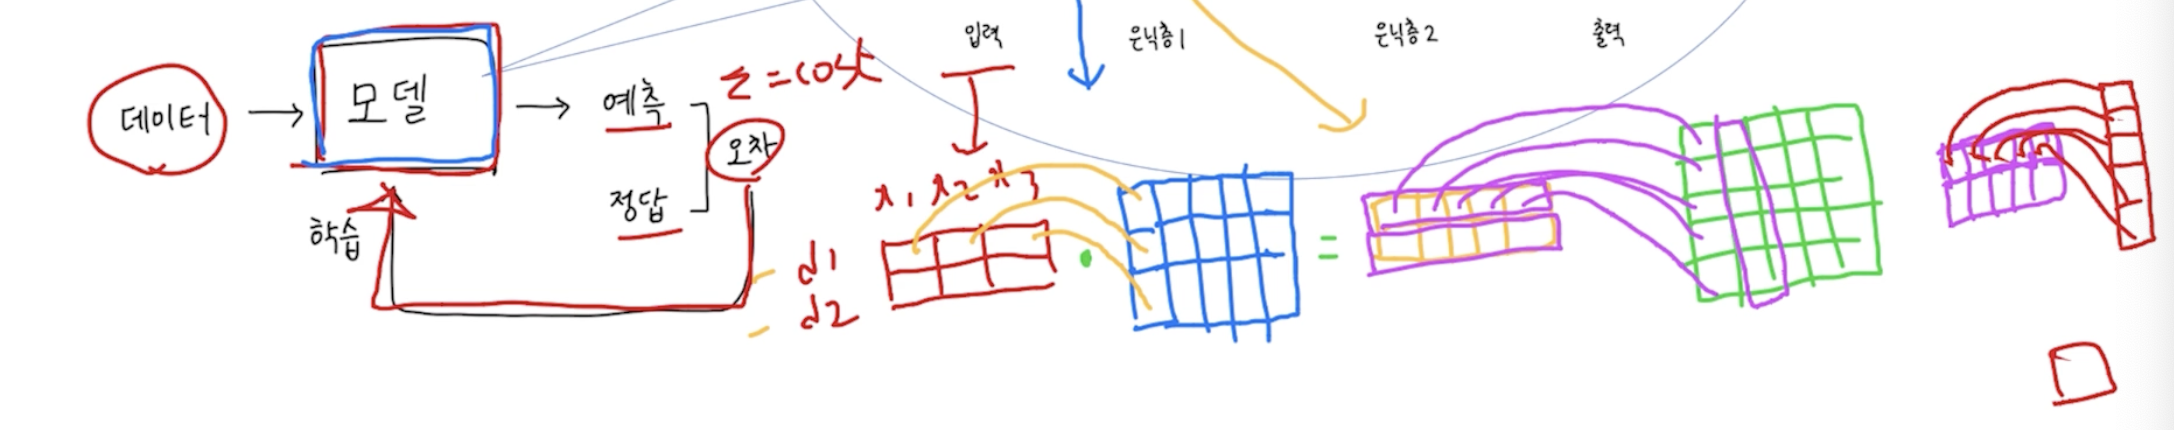 데이터
모델
예측
정답
오차
학습
Σ = cost
입력
은닉층1
은닉층2
출력
x1 x2 x3
d1
d2
=